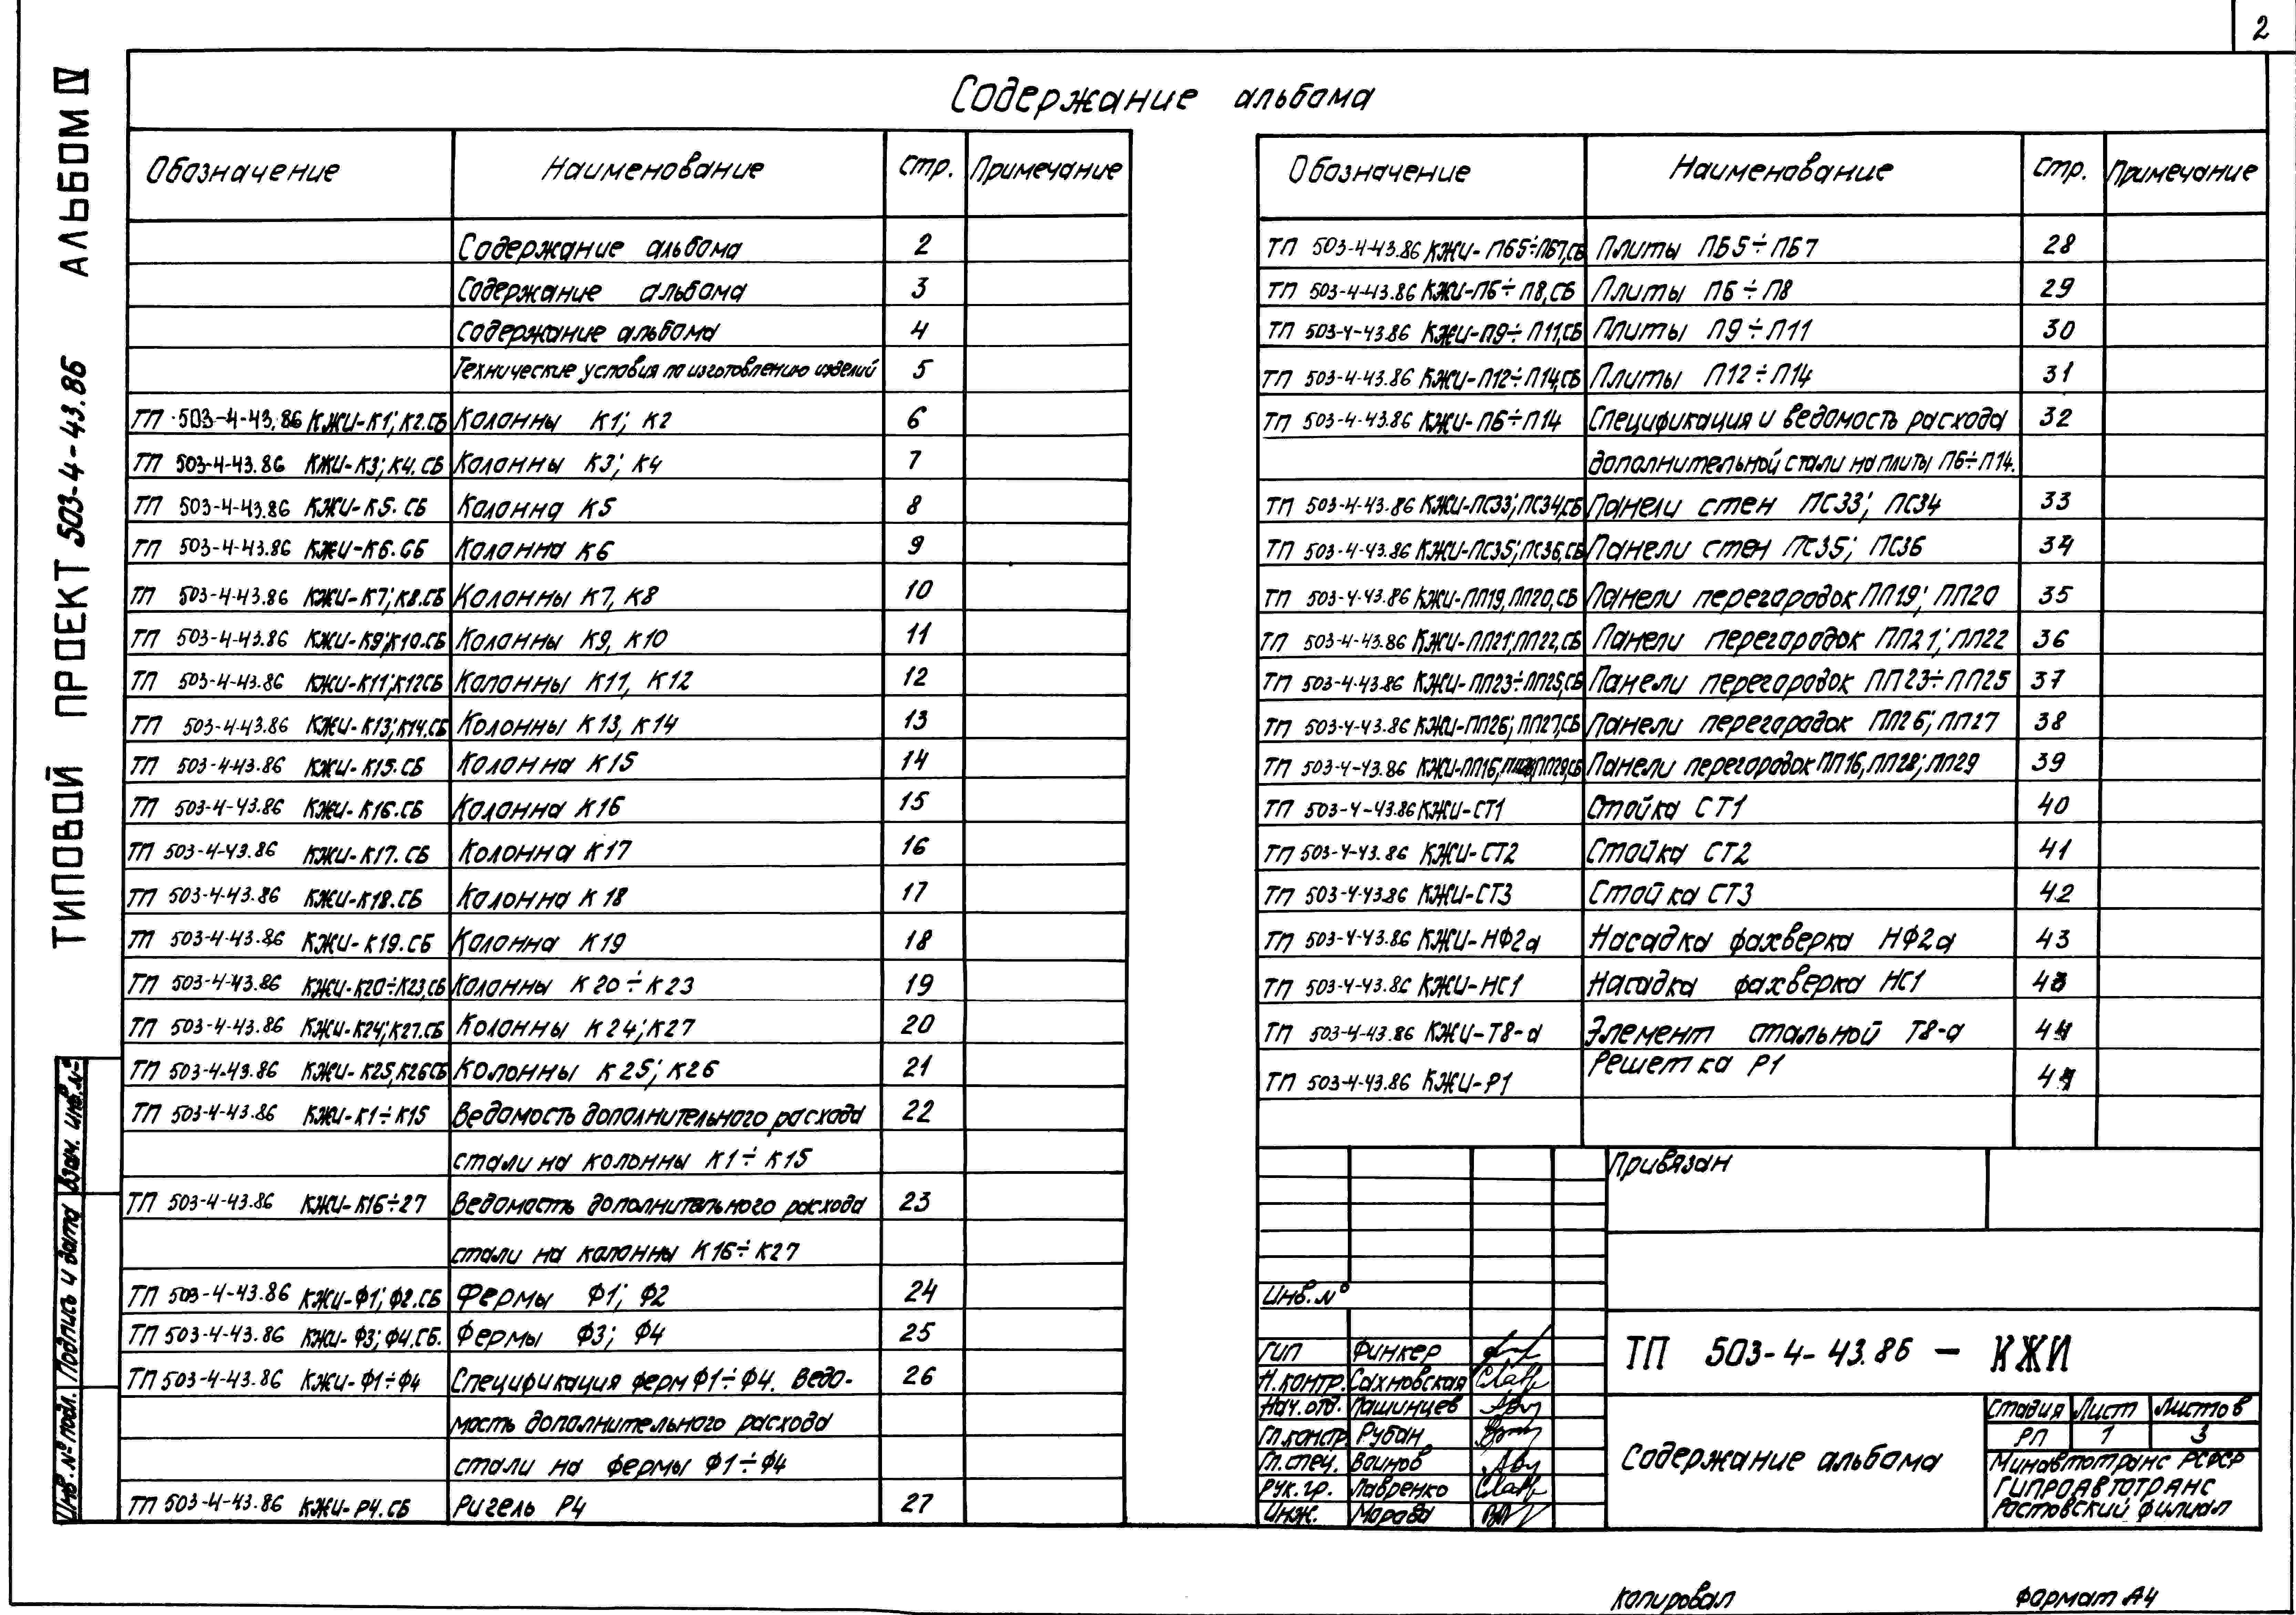 2
ТИПОВОЙ ПРОЕКТ 503-4-43.86 АЛЬБОМ IV
Содержание альбома
Обозначение Наименование стр. Примечание
Содержание альбома 2
Содержание альбома 3
Содержание альбома 4
Технические условия по изготовлению изделий 5
ТП 503-4-43.86 КЖИ-К1; К2.СБ Колонны К1; К2 6
ТП 503-4-43.86 КЖИ-К3; К4.СБ Колонны К3; К4 7
ТП 503-4-43.86 КЖИ-К5.СБ Колонна К5 8
ТП 503-4-43.86 КЖИ-К6.СБ Колонна К6 9
ТП 503-4-43.86 КЖИ-К7; К8.СБ Колонны К7, К8 10
ТП 503-4-43.86 КЖИ-К9; К10.СБ Колонны К9, К10 11
ТП 503-4-43.86 КЖИ-К11; К12СБ Колонны К11, К12 12
ТП 503-4-43.86 КЖИ-К13; К14.СБ Колонны К13, К14 13
ТП 503-4-43.86 КЖИ-К15.СБ Колонна К15 14
ТП 503-4-43.86 КЖИ-К16.СБ Колонна К16 15
ТП 503-4-43.86 КЖИ-К17.СБ Колонна К17 16
ТП 503-4-43.86 КЖИ-К18.СБ Колонна К18 17
ТП 503-4-43.86 КЖИ-К19.СБ Колонна К19 18
ТП 503-4-43.86 КЖИ-К20÷К23,СБ Колонны К20÷К23 19
ТП 503-4-43.86 КЖИ-К24; К27.СБ Колонны К24; К27 20
ТП 503-4-43.86 КЖИ-К25, К26СБ Колонны К25; К26 21
ТП 503-4-43.86 КЖИ-К1÷К15 Ведомость дополнительного расхода 22
стали на колонны К1÷К15
ТП 503-4-43.86 КЖИ-К16÷27 Ведомость дополнительного расхода 23
стали на колонны К16÷К27
ТП 503-4-43.86 КЖИ-Ф1; Ф2.СБ Фермы Ф1; Ф2 24
ТП 503-4-43.86 КЖИ-Ф3; Ф4.СБ. Фермы Ф3; Ф4 25
ТП 503-4-43.86 КЖИ-Ф1÷Ф4 Спецификация ферм Ф1÷Ф4. Ведо- 26
мость дополнительного расхода
стали на фермы Ф1÷Ф4
ТП 503-4-43.86 КЖИ-Р4.СБ Ригель Р4 27
Обозначение Наименование стр. Примечание
ТП 503-4-43.86 КЖИ-ПБ5÷ПБ7,СБ Плиты ПБ5÷ПБ7 28
ТП 503-4-43.86 КЖИ-П6÷П8,СБ Плиты П6÷П8 29
ТП 503-4-43.86 КЖИ-П9÷П11,СБ Плиты П9÷П11 30
ТП 503-4-43.86 КЖИ-П12÷П14,СБ Плиты П12÷П14 31
ТП 503-4-43.86 КЖИ-П6÷П14 Спецификация и ведомость расхода 32
дополнительной стали на плиты П6÷П14.
ТП 503-4-43.86 КЖИ-ПС33; ПС34,СБ Панели стен ПС33; ПС34 33
ТП 503-4-43.86 КЖИ-ПС35; ПС36,СБ Панели стен ПС35; ПС36 34
ТП 503-4-43.86 КЖИ-ПП19, ПП20,СБ Панели перегородок ПП19; ПП20 35
ТП 503-4-43.86 КЖИ-ПП21; ПП22,СБ Панели перегородок ПП21; ПП22 36
ТП 503-4-43.86 КЖИ-ПП23÷ПП25,СБ Панели перегородок ПП23÷ПП25 37
ТП 503-4-43.86 КЖИ-ПП26; ПП27,СБ Панели перегородок ПП26; ПП27 38
ТП 503-4-43.86 КЖИ-ПП16, ПП29,СБ Панели перегородок ПП16, ПП28; ПП29 39
ТП 503-4-43.86 КЖИ-СТ1 Стойка СТ1 40
ТП 503-4-43.86 КЖИ-СТ2 Стойка СТ2 41
ТП 503-4-43.86 КЖИ-СТ3 Стойка СТ3 42
ТП 503-4-43.86 КЖИ-НФ2а Насадка фахверка НФ2а 43
ТП 503-4-43.86 КЖИ-НС1 Насадка фахверка НС1 43
ТП 503-4-43.86 КЖИ-Т8-а Элемент стальной Т8-а 44
ТП 503-4-43.86 КЖИ-Р1 Решетка Р1 44
Привязан
Инв.№
ГИП Финкер
Н.контр. Сахновская
Нач.отд. Пашинцев
Гл.констр. Рубан
Гл.спец. Воинов
Рук.гр. Лавренко
Инж.
ТП 503-4-43.86 - КЖИ
Содержание альбома
Стадия Лист Листов
РП 1 3
Минавтотранс РСФСР
ГИПРОАВТОТРАНС
Ростовский филиал
Инв.№ подл. Подпись и дата Взам. инв.№
Копировал Формат А4